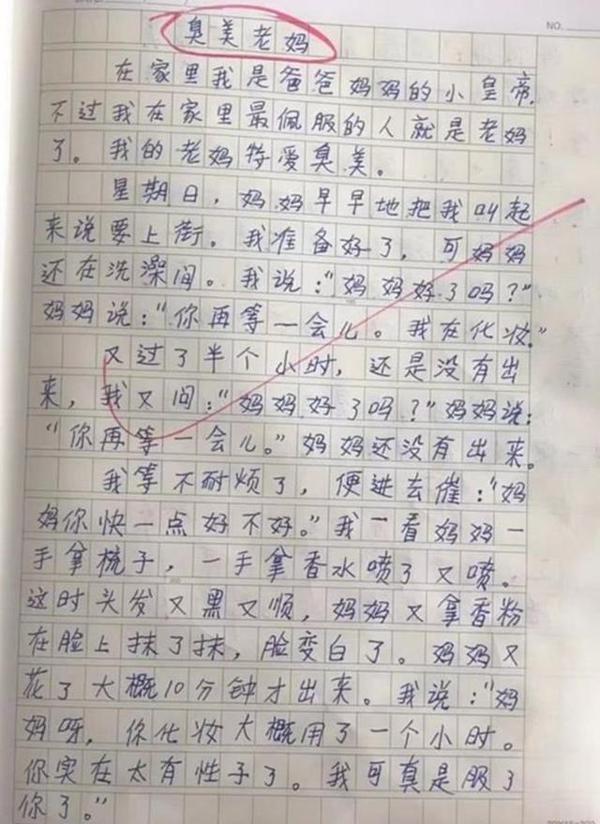 NO.
臭美老妈
在家里我是爸爸妈妈的小皇帝，
不过我在家里最佩服的人就是老妈
了。我的老妈特爱臭美。
星期日，妈妈早早地把我叫起
来说要上街。我准备好了，可妈妈
还在洗澡间。我说：“妈妈好了吗？”
妈妈说：“你再等一会儿。我在化妆。”
又过了半个小时，还是没有出
来，我又问：“妈妈好了吗？”妈妈说：
“你再等一会儿。”妈妈还没有出来。
我等不耐烦了，便进去催：“妈
妈你快一点好不好。”我一看妈妈一
手拿梳子，一手拿香水喷了又喷。
这时头发又黑又顺，妈妈又拿香粉
在脸上抹了抹，脸变白了。妈妈又
花了大概10分钟才出来。我说：“妈
妈呀，你化妆大概用了一个小时。
你实在太有性子了。我可真是服了
你了。”